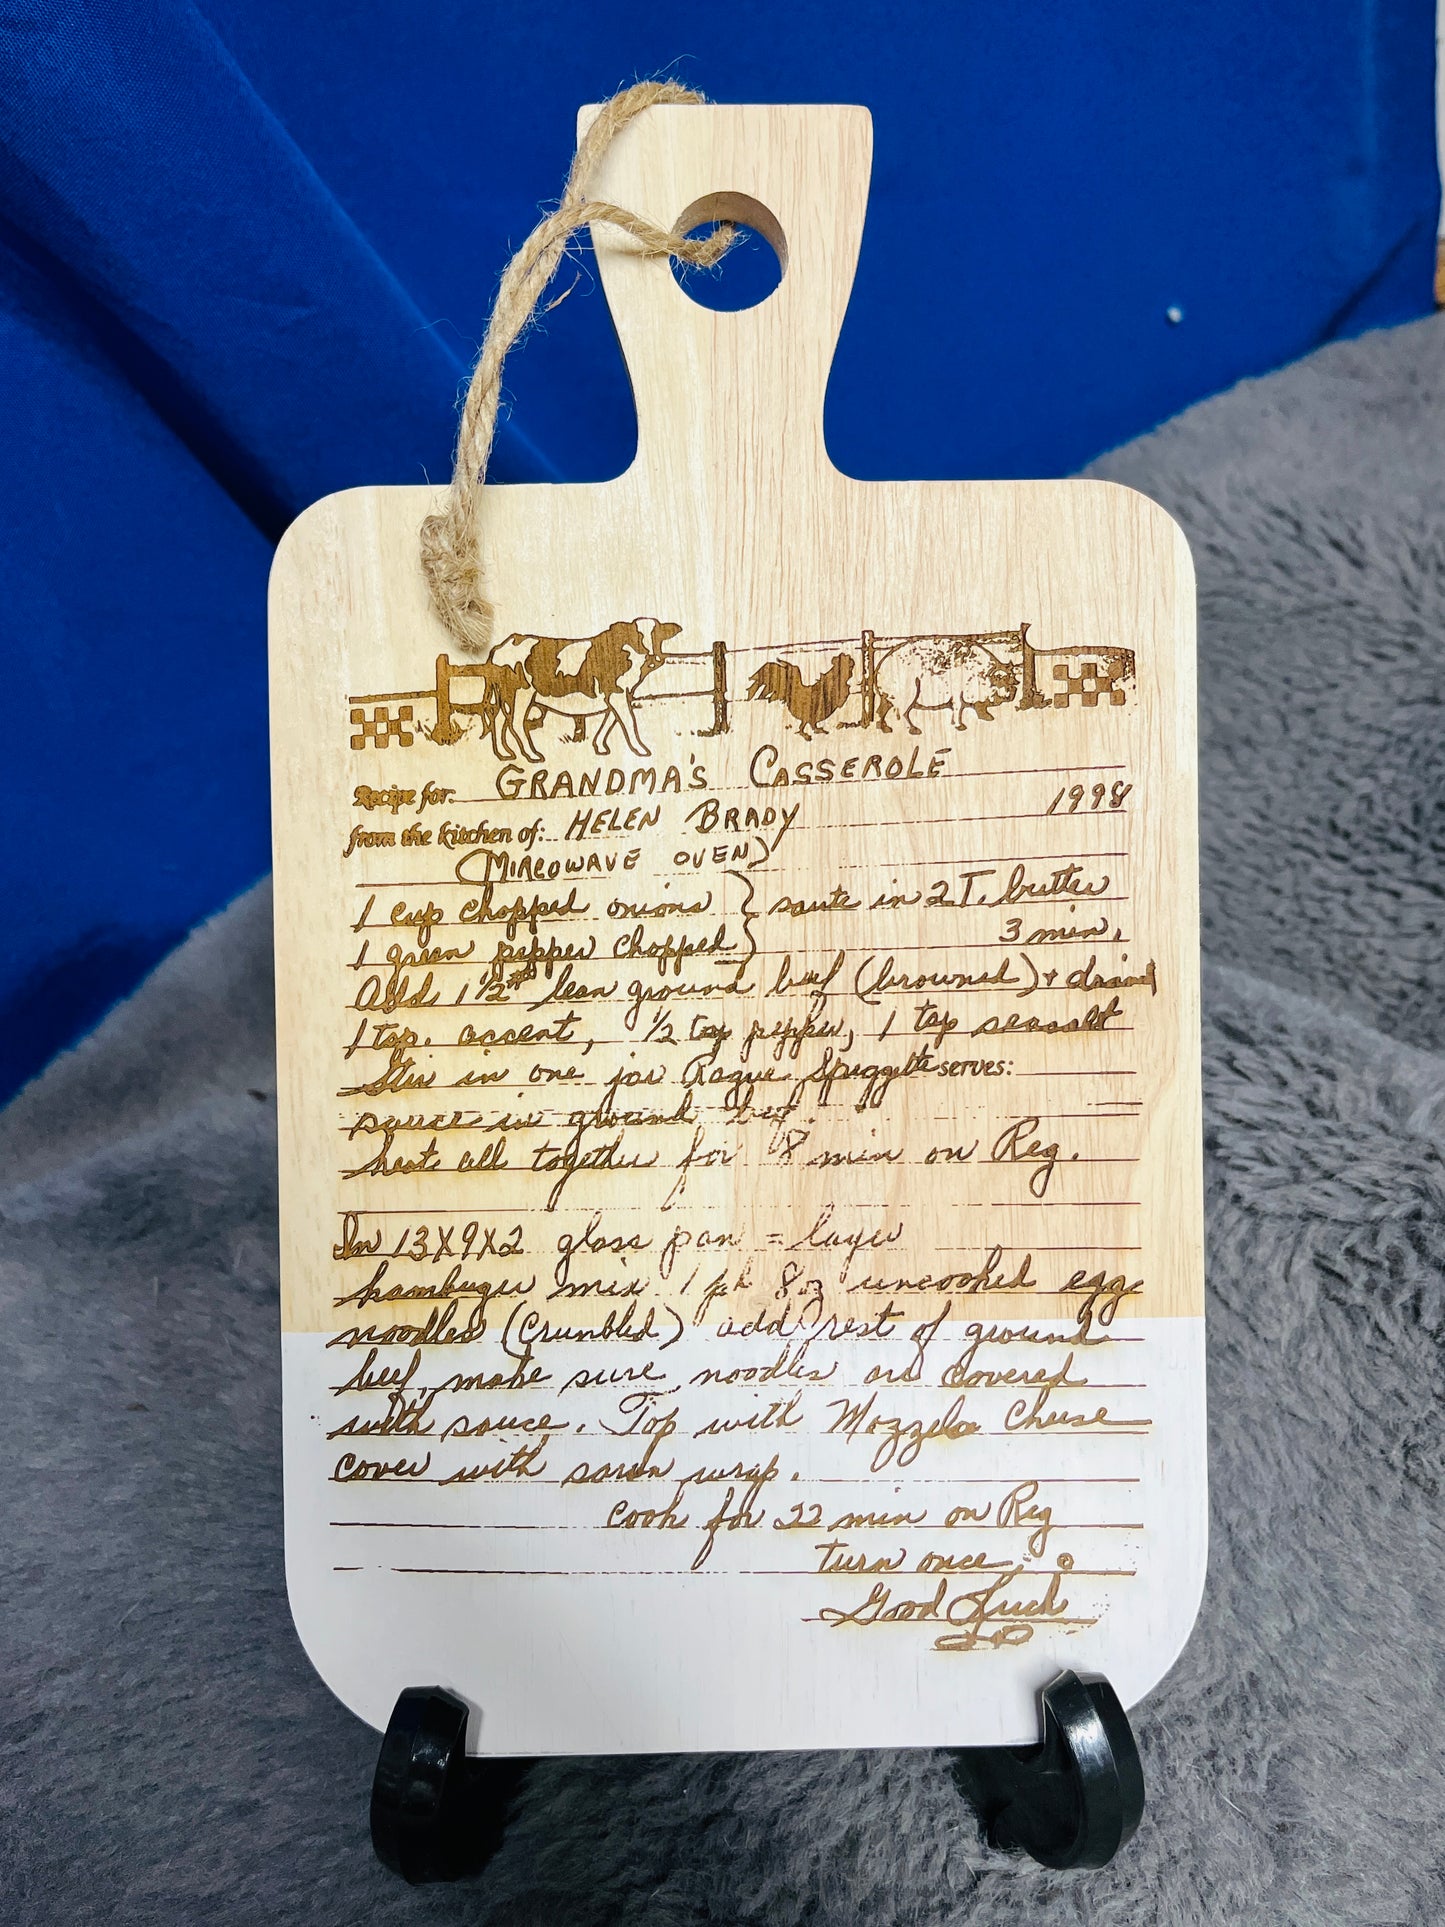 Recipe for: GRANDMA'S CASSEROLE
from the kitchen of: HELEN BRADY 1998
(MIRCOWAVE OVEN)
1 cup chopped onions } saute in 2 T. butter
1 green pepper chopped } 3 min.
Add 1 1/2# lean ground beef (browned) + drained
1 tsp. accent, 1/2 tsp pepper, 1 tsp seasalt
Stir in one jar Rague Spuggette serves:
sauce in ground beef.
heat all together for 8 min on Reg.
In 13X9X2 glass pan = layer
hambuger mix 1 pk 8oz uncooked egg
noodles (Crumbled) add rest of ground
beef, make sure noodles are covered
with sauce. Top with Mozzela Cheese
cover with saran wrap.
cook for 22 min on Reg
turn once.
Good Luck